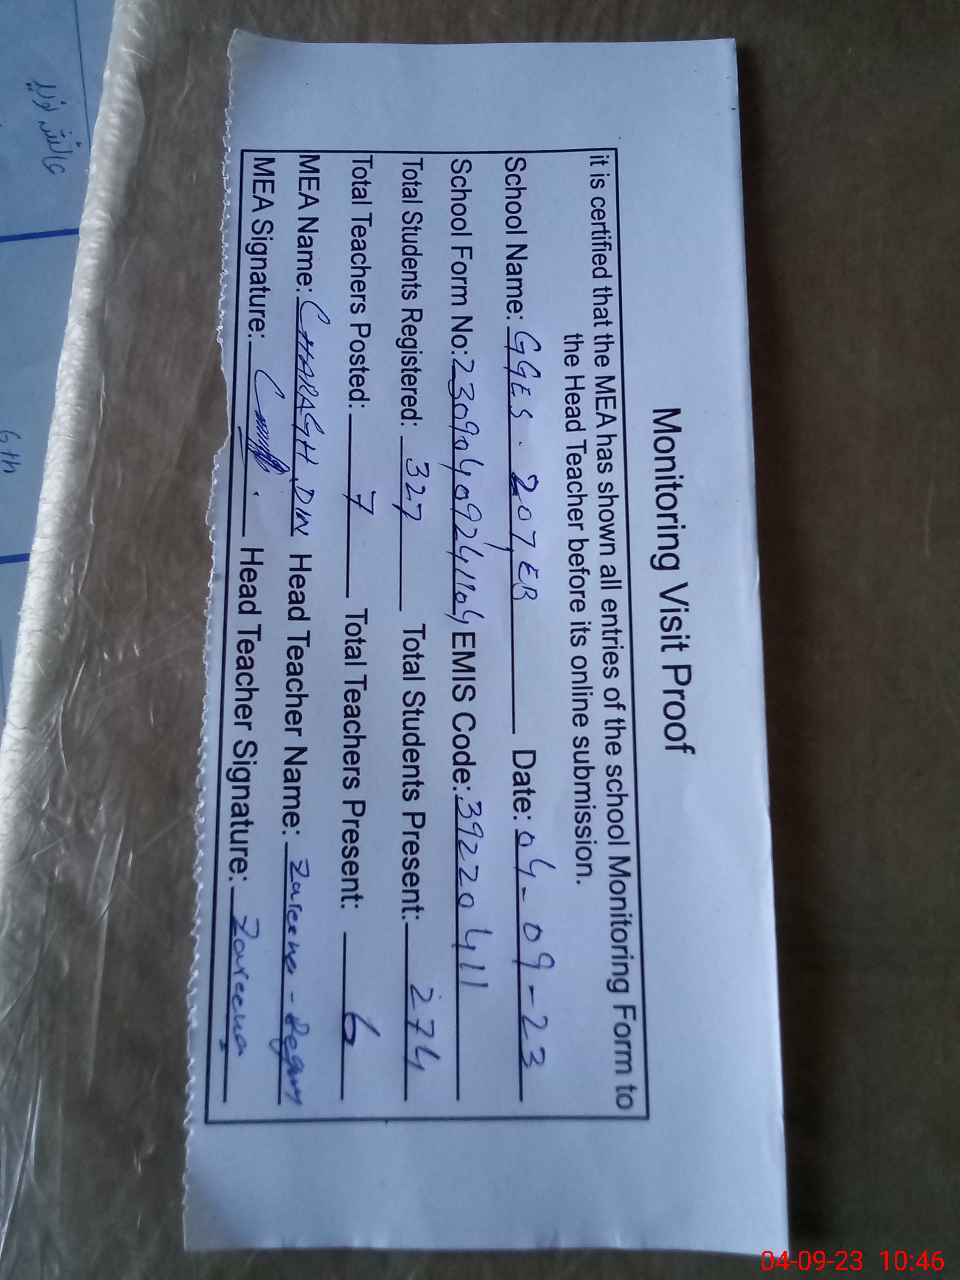 Monitoring Visit Proof
it is certified that the MEA has shown all entries of the school Monitoring Form to
the Head Teacher before its online submission.
School Name: GGES. 207, EB Date: 04-09-23
School Form No: 23090409241104 EMIS Code: 39220411
Total Students Registered: 327 Total Students Present: 274
Total Teachers Posted: 7 Total Teachers Present: 6
MEA Name: CHARAGH DIN Head Teacher Name: Zareena - Begam
MEA Signature: Head Teacher Signature: Zareena
6th
04-09-23 10:46